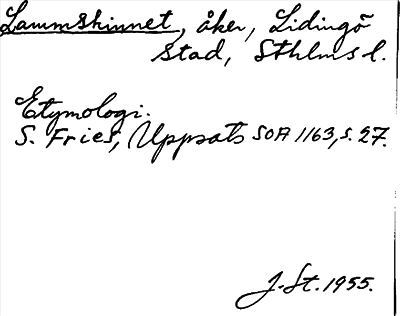 Lammskinnet, åker, Lidingö
stad, Sthlms l.
Etymologi.
S. Fries, Uppsats SOA 1163, s. 27.
J. St. 1955.